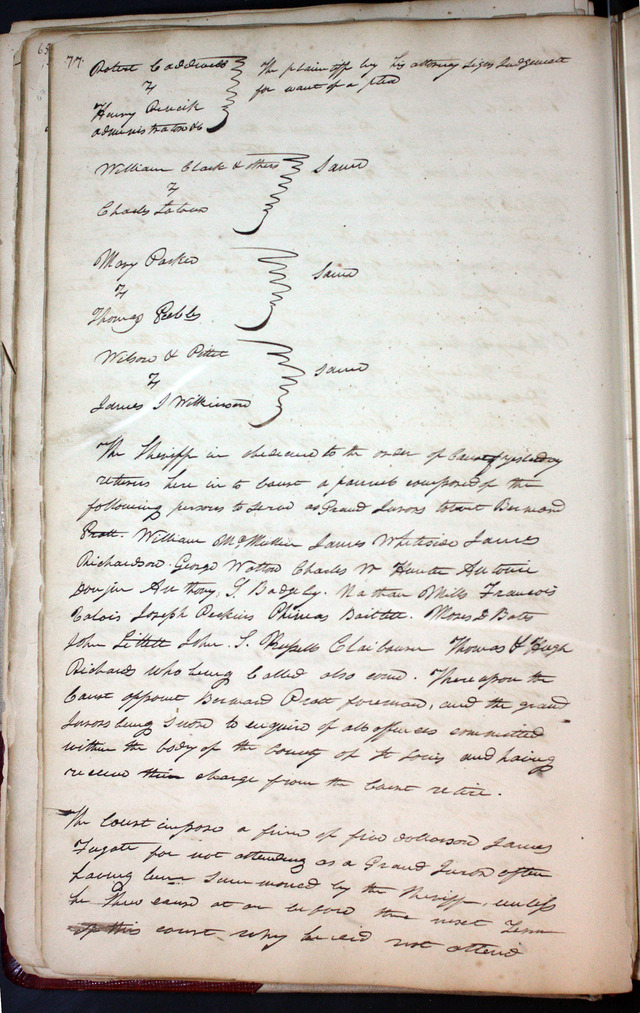 65
77. Robert Caldwell
vs
The plaintiff by his attorney signs Judgement
for want of a plea
Henry
administrator &c
William Clark & others
vs
Charles
Same
Mary Parker
vs
Thomas Peebles
Same
Wilson &
vs
James S Wilkinson
Same
The Sheriff in obedience to the order of Court of yesterday
returns here in to Court a pannel composed of the
following persons to serve as Grand Jurors to wit Bernard
Pratt. William McMullin James Whiteside James
Richardson George Wotton Charles W Hunter Antoine
Donjin Anthony S. Badgley. Nathan Mills Francois
Valois Joseph Perkins Phineas Bartlett. Moses D Bates
John Littell John S. Russell Claiborn Thomas & Hugh
Richards who being Called also come. Thereupon the
Court appoint Bernard Pratt foreman, and the grand
Jurors being sworn to enquire of all offences committed
within the body of the County of St Louis and having
receive their charge from the Court retire.
The Court impose a fine of five dollars on James
Fugate for not attending as a Grand Juror after
having been summoned by the Sheriff, unless
he shew cause at or before the next Term
of this court why he did not attend